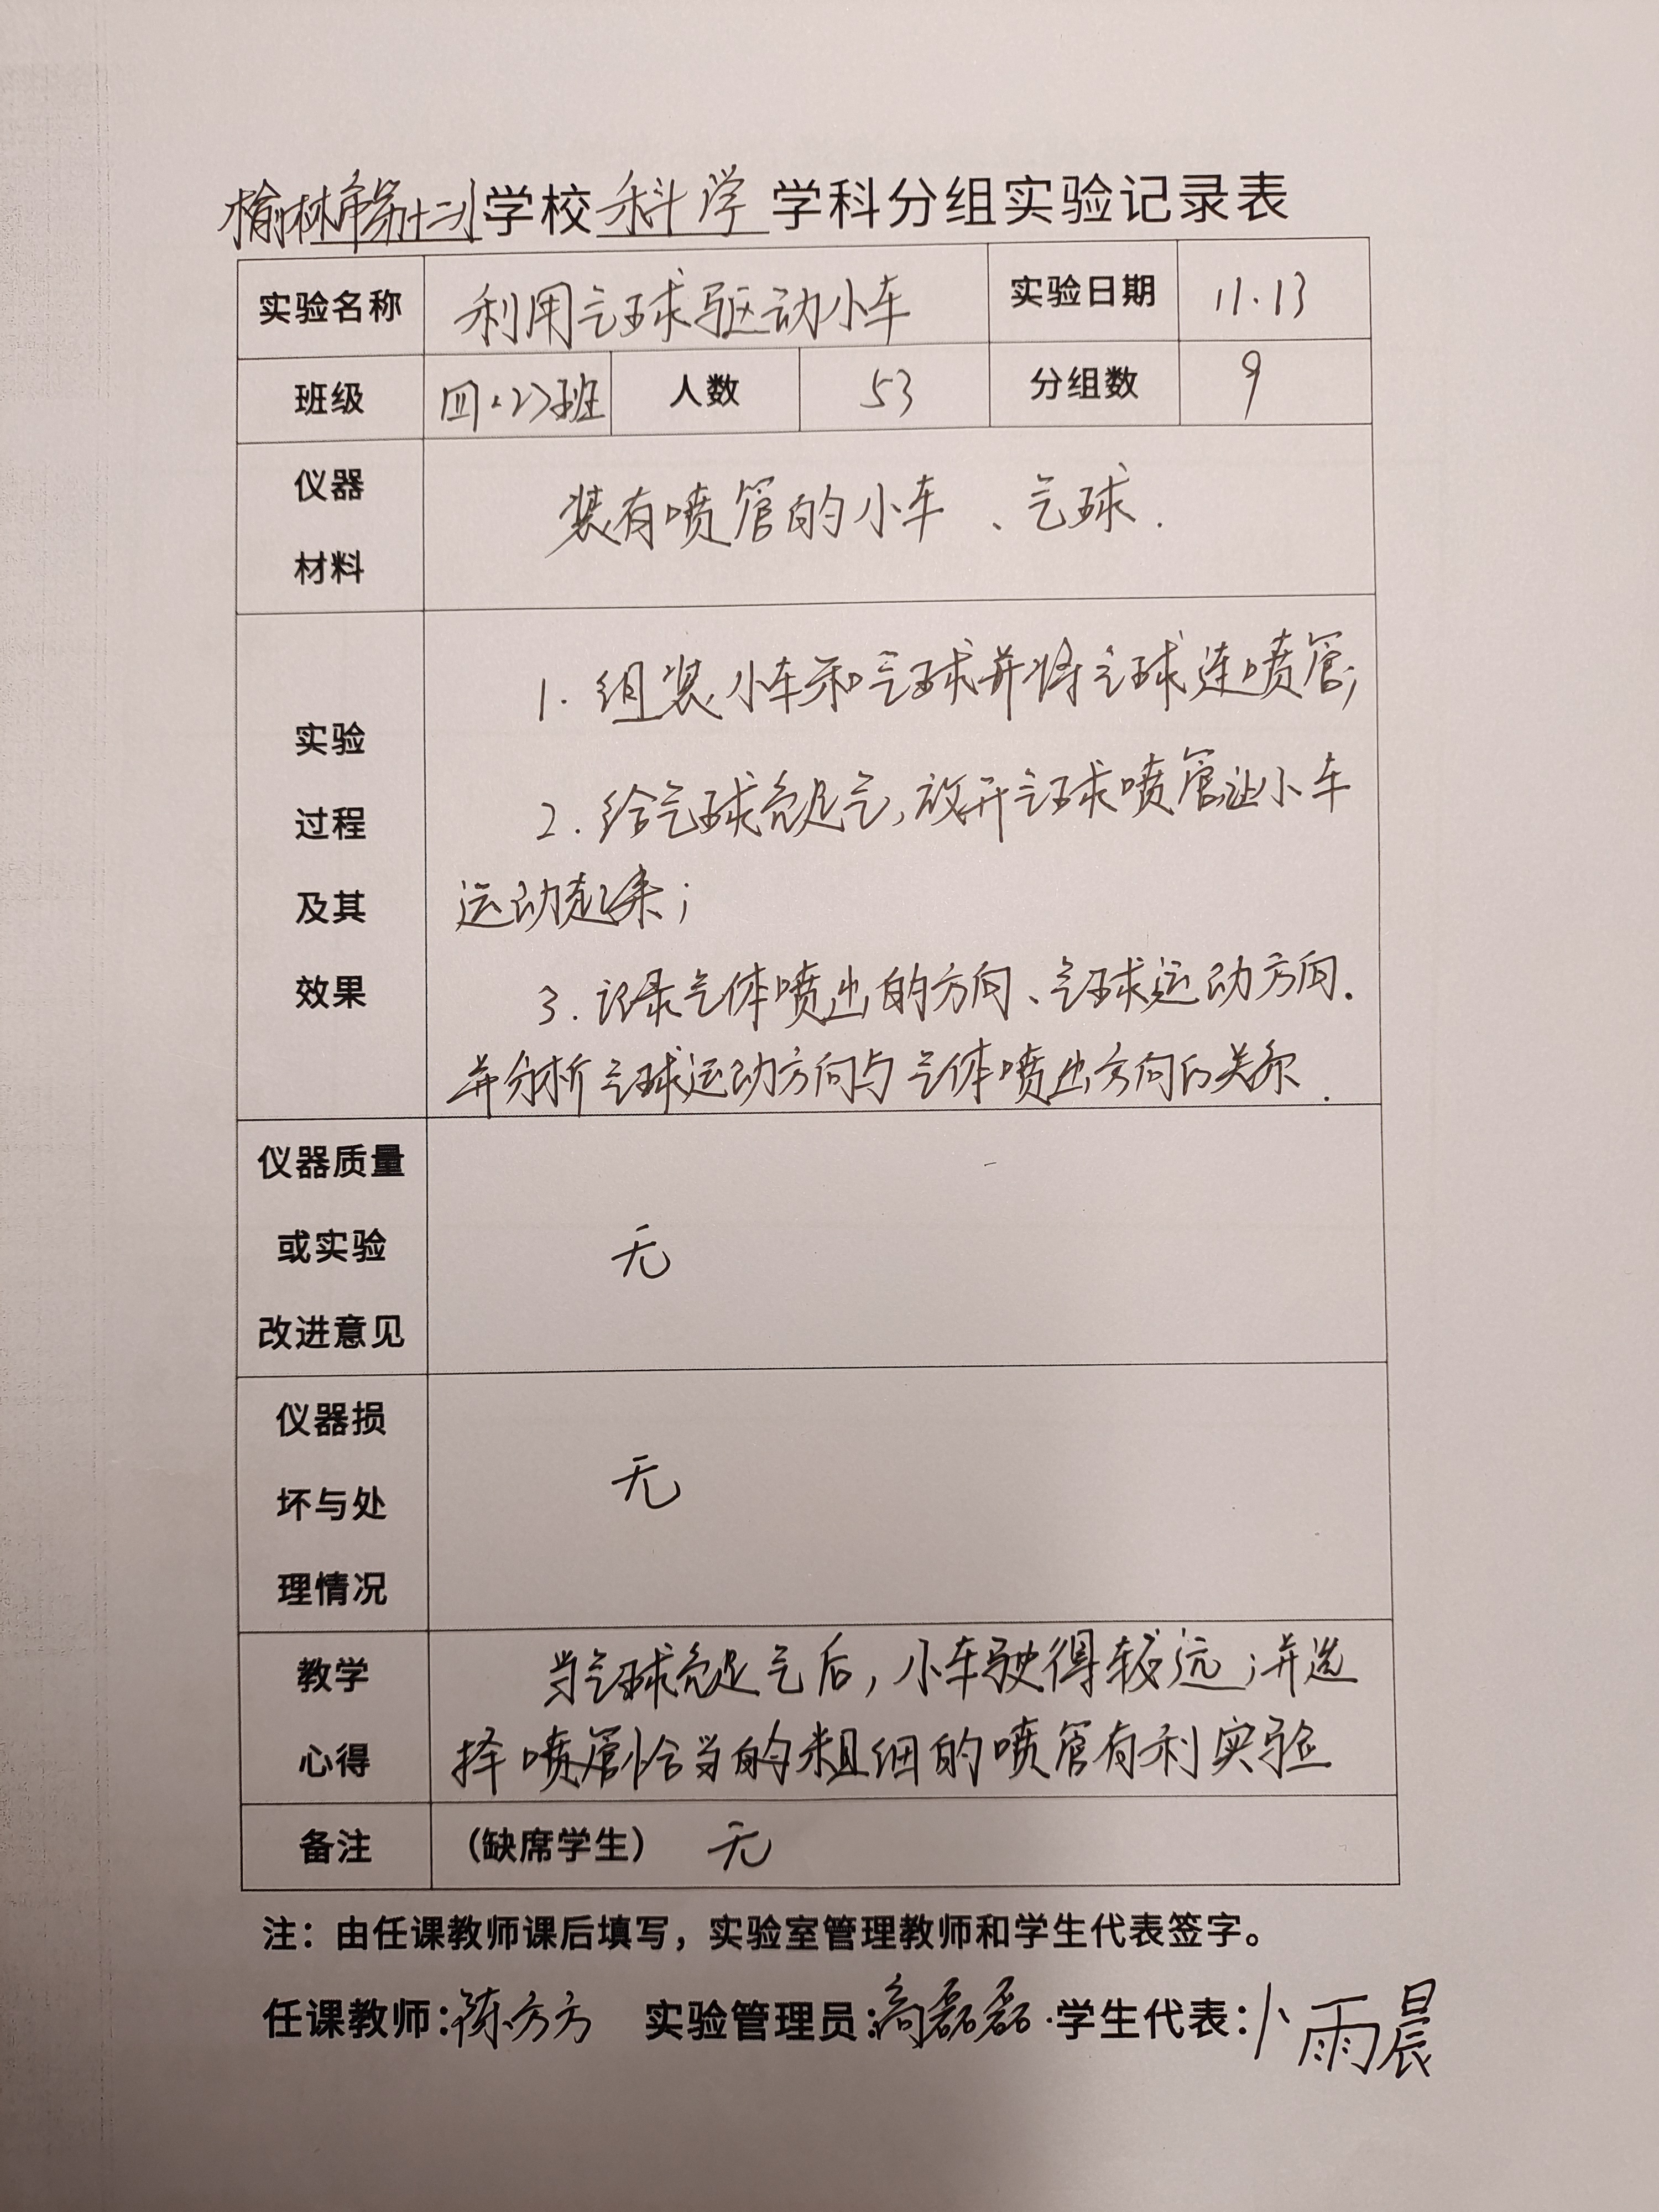 榆林市第十二小学校科学学科分组实验记录表
实验名称 利用气球驱动小车 实验日期 11.13
班级 四.(2)班 人数 53 分组数 9
仪器
材料
装有喷管的小车、气球.
实验
过程
及其
效果
1. 组装小车和气球并将气球连喷管;
2. 给气球充足气,放开气球喷管让小车
运动起来;
3. 记录气体喷出的方向、气球运动方向.
并分析气球运动方向与气体喷出方向的关系.
仪器质量
或实验
改进意见
无
仪器损
坏与处
理情况
无
教学
心得
当气球充足气后,小车驶得较远;并选
择喷管恰当的粗细的喷管有利实验
备注 (缺席学生) 无
注：由任课教师课后填写，实验室管理教师和学生代表签字。
任课教师:陈方方 实验管理员:高磊磊 学生代表:卜雨晨